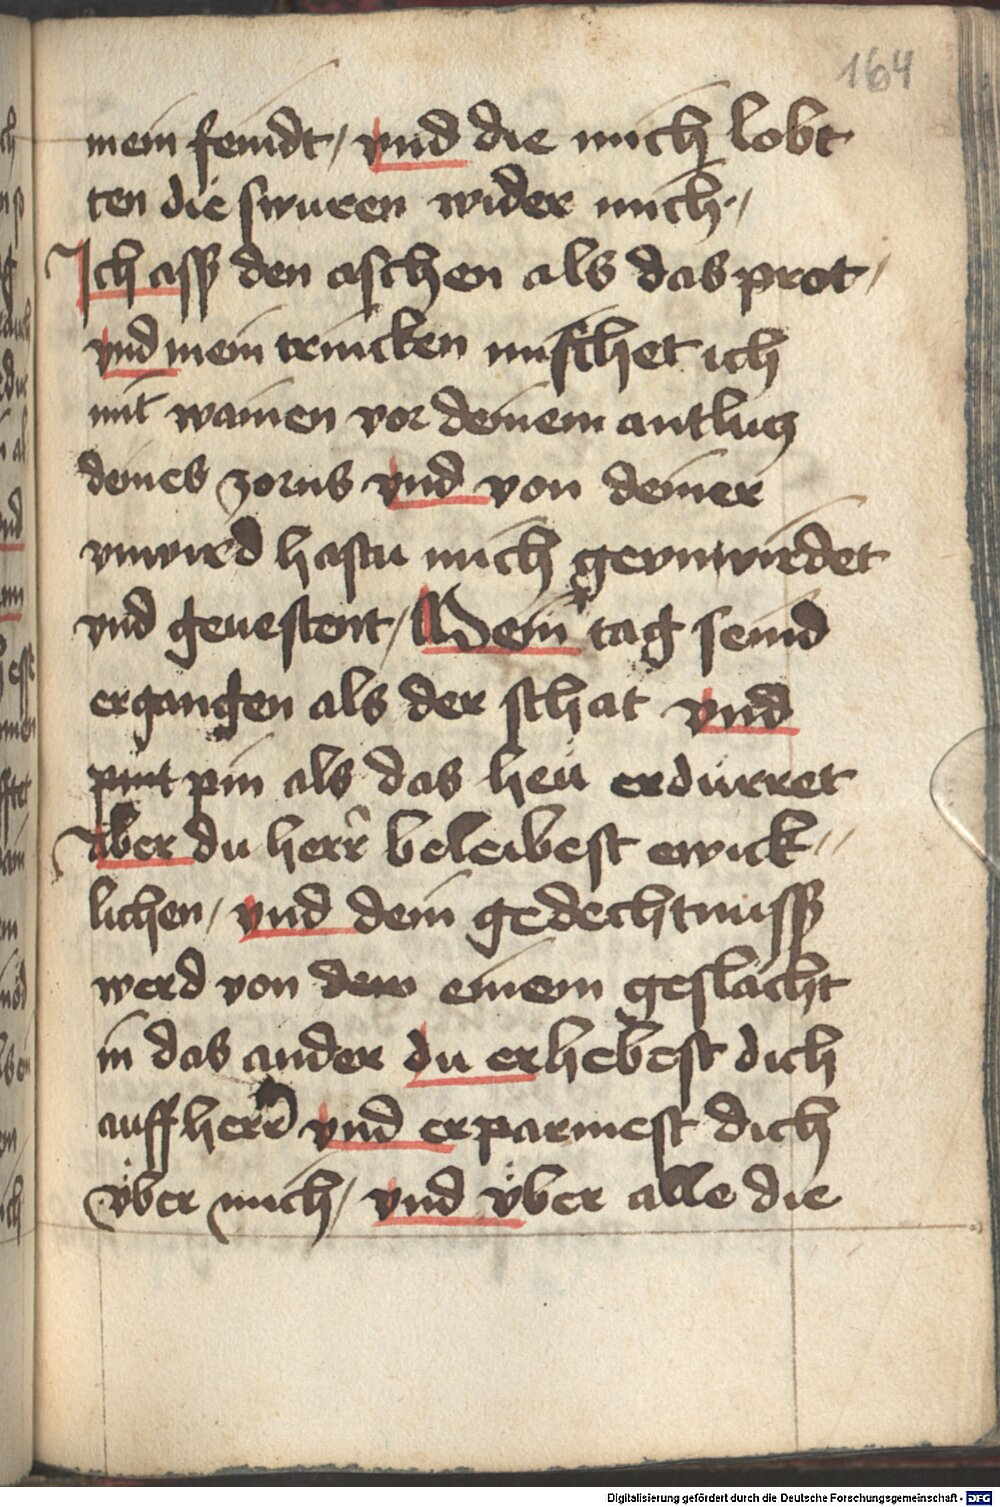 164
mein feindt / vnd die mich lobt
ten die swuren wider mich /
Ich assz den aschen als das prot /
vnd mein trincken mischet ich
mit wainen vor deinem antlucz
deines zorns vnd von deiner
vnwird hastu mich gevnwirdet
vnd geuestent / Mein tag seind
ergangen als der schat vnd
pint pin als das heu erdurret
Aber du herr beleibest ewick //
lichen / vnd dein gedechtnussz
werd von dem einem geslächt
in das ander du erhebest dich
auff herr vnd erparmest dich
vber mich / vnd vber alle die
Digitalisierung gefördert durch die Deutsche Forschungsgemeinschaft - DFG